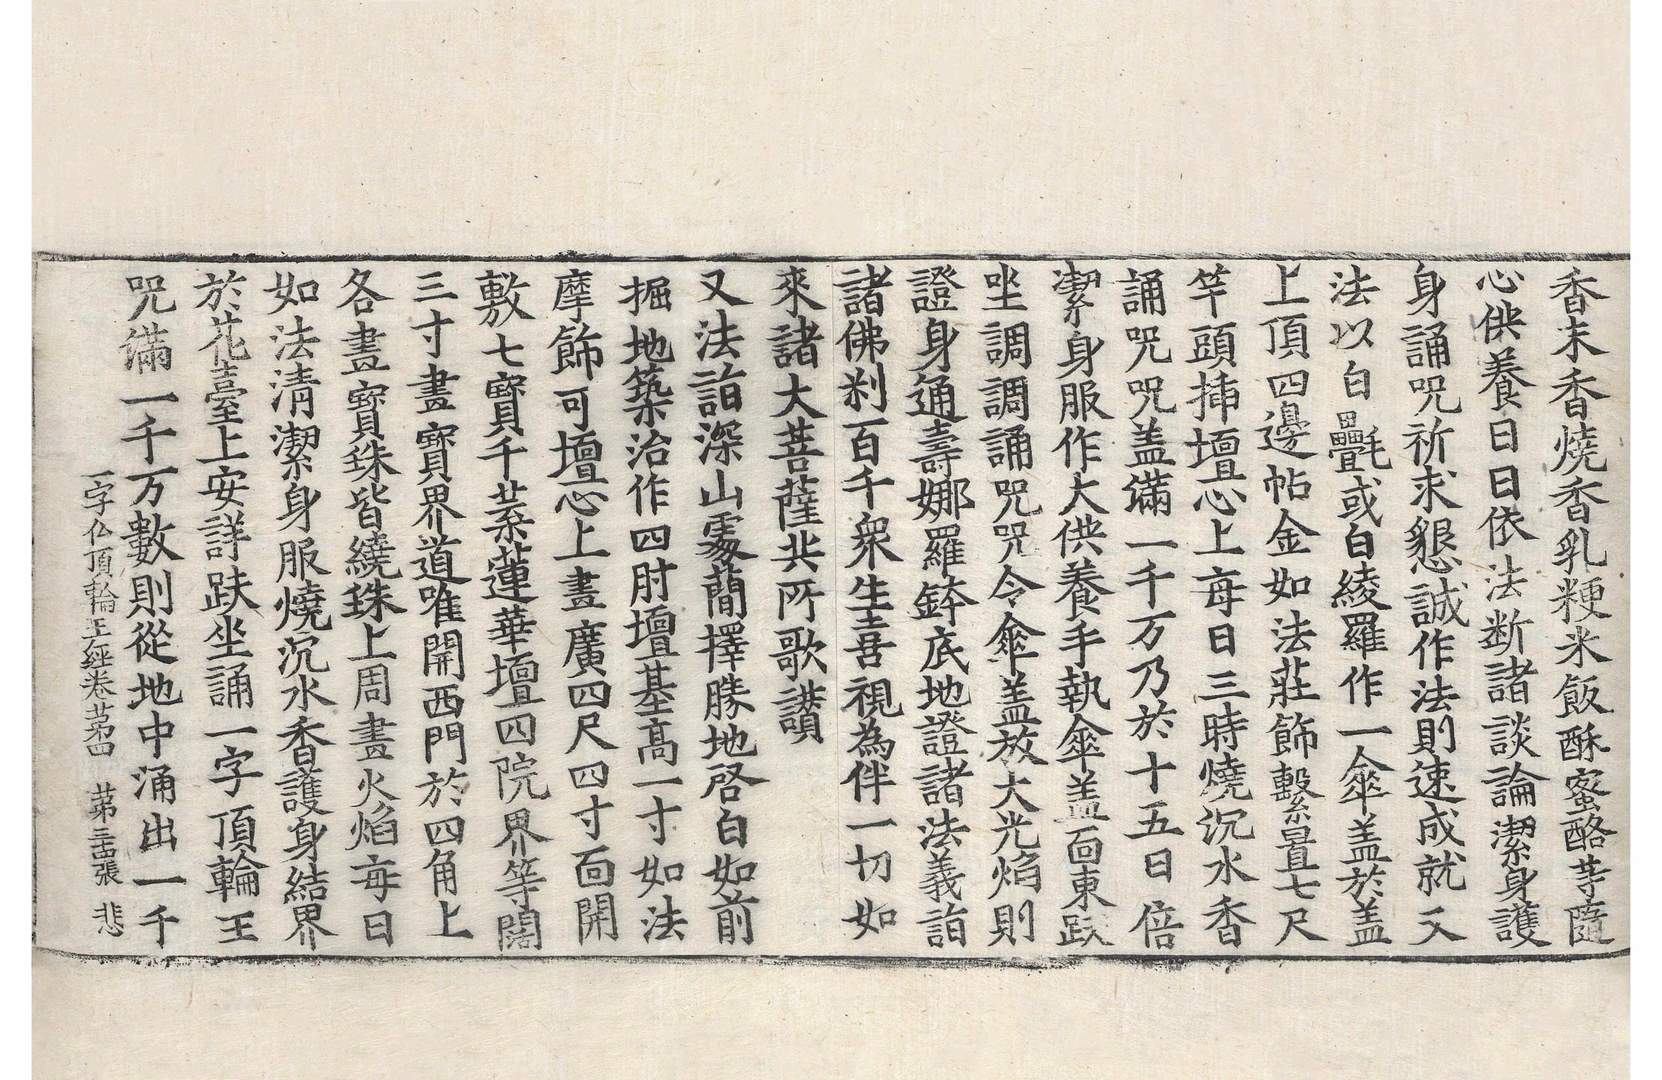 香末香燒香乳粳米飯酥蜜酪等隨
心供養日日依法断諸談論潔身護
身誦咒祈求懇誠作法則速成就又
法以白㲲或白綾羅作一傘盖於盖
上頂四邊帖金如法莊飾繫㬪七尺
竿頭揷壇心上每日三時燒沉水香
誦咒咒盖滿一千万乃於十五日倍
潔身服作大供養手執傘盖面東趺
坐調調誦咒咒令傘盖放大光焰則
證身通壽娜羅鉢底地證諸法義詣
諸佛刹百千衆生喜視為伴一切如
來諸大菩薩共所歌讃
又法詣深山處蕳擇勝地啓白如前
掘地築治作四肘壇基高一寸如法
摩飾可壇心上畫廣四尺四寸面開
敷七寶千葉蓮華壇四院界等闊
三寸畫寶界道唯開西門於四角上
各畫寶珠皆繞珠上周畫火焰每日
如法清潔身服燒沉水香護身結界
於花臺上安詳趺坐誦一字頂輪王
咒滿一千万數則從地中涌出一千
一字仏頂輪王經卷苐四　苐三十五張　悲